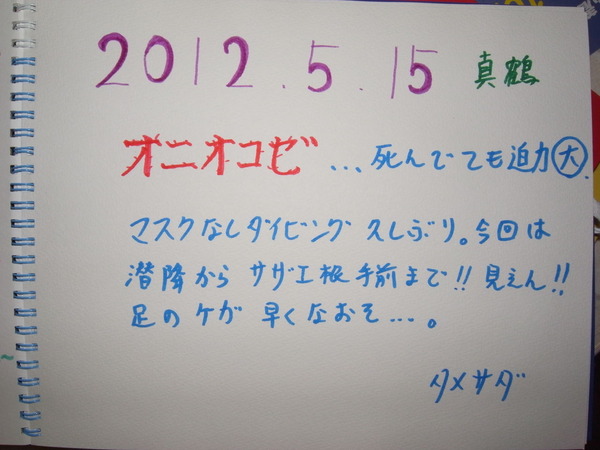 2012.5.15 真鶴
オニオコゼ ...死んでても迫力大
マスクなしダイビング 久しぶり。今回は
潜降から サザエ根 手前まで!!見えん!!
足のケガ 早くなおそ…。
タメサダ